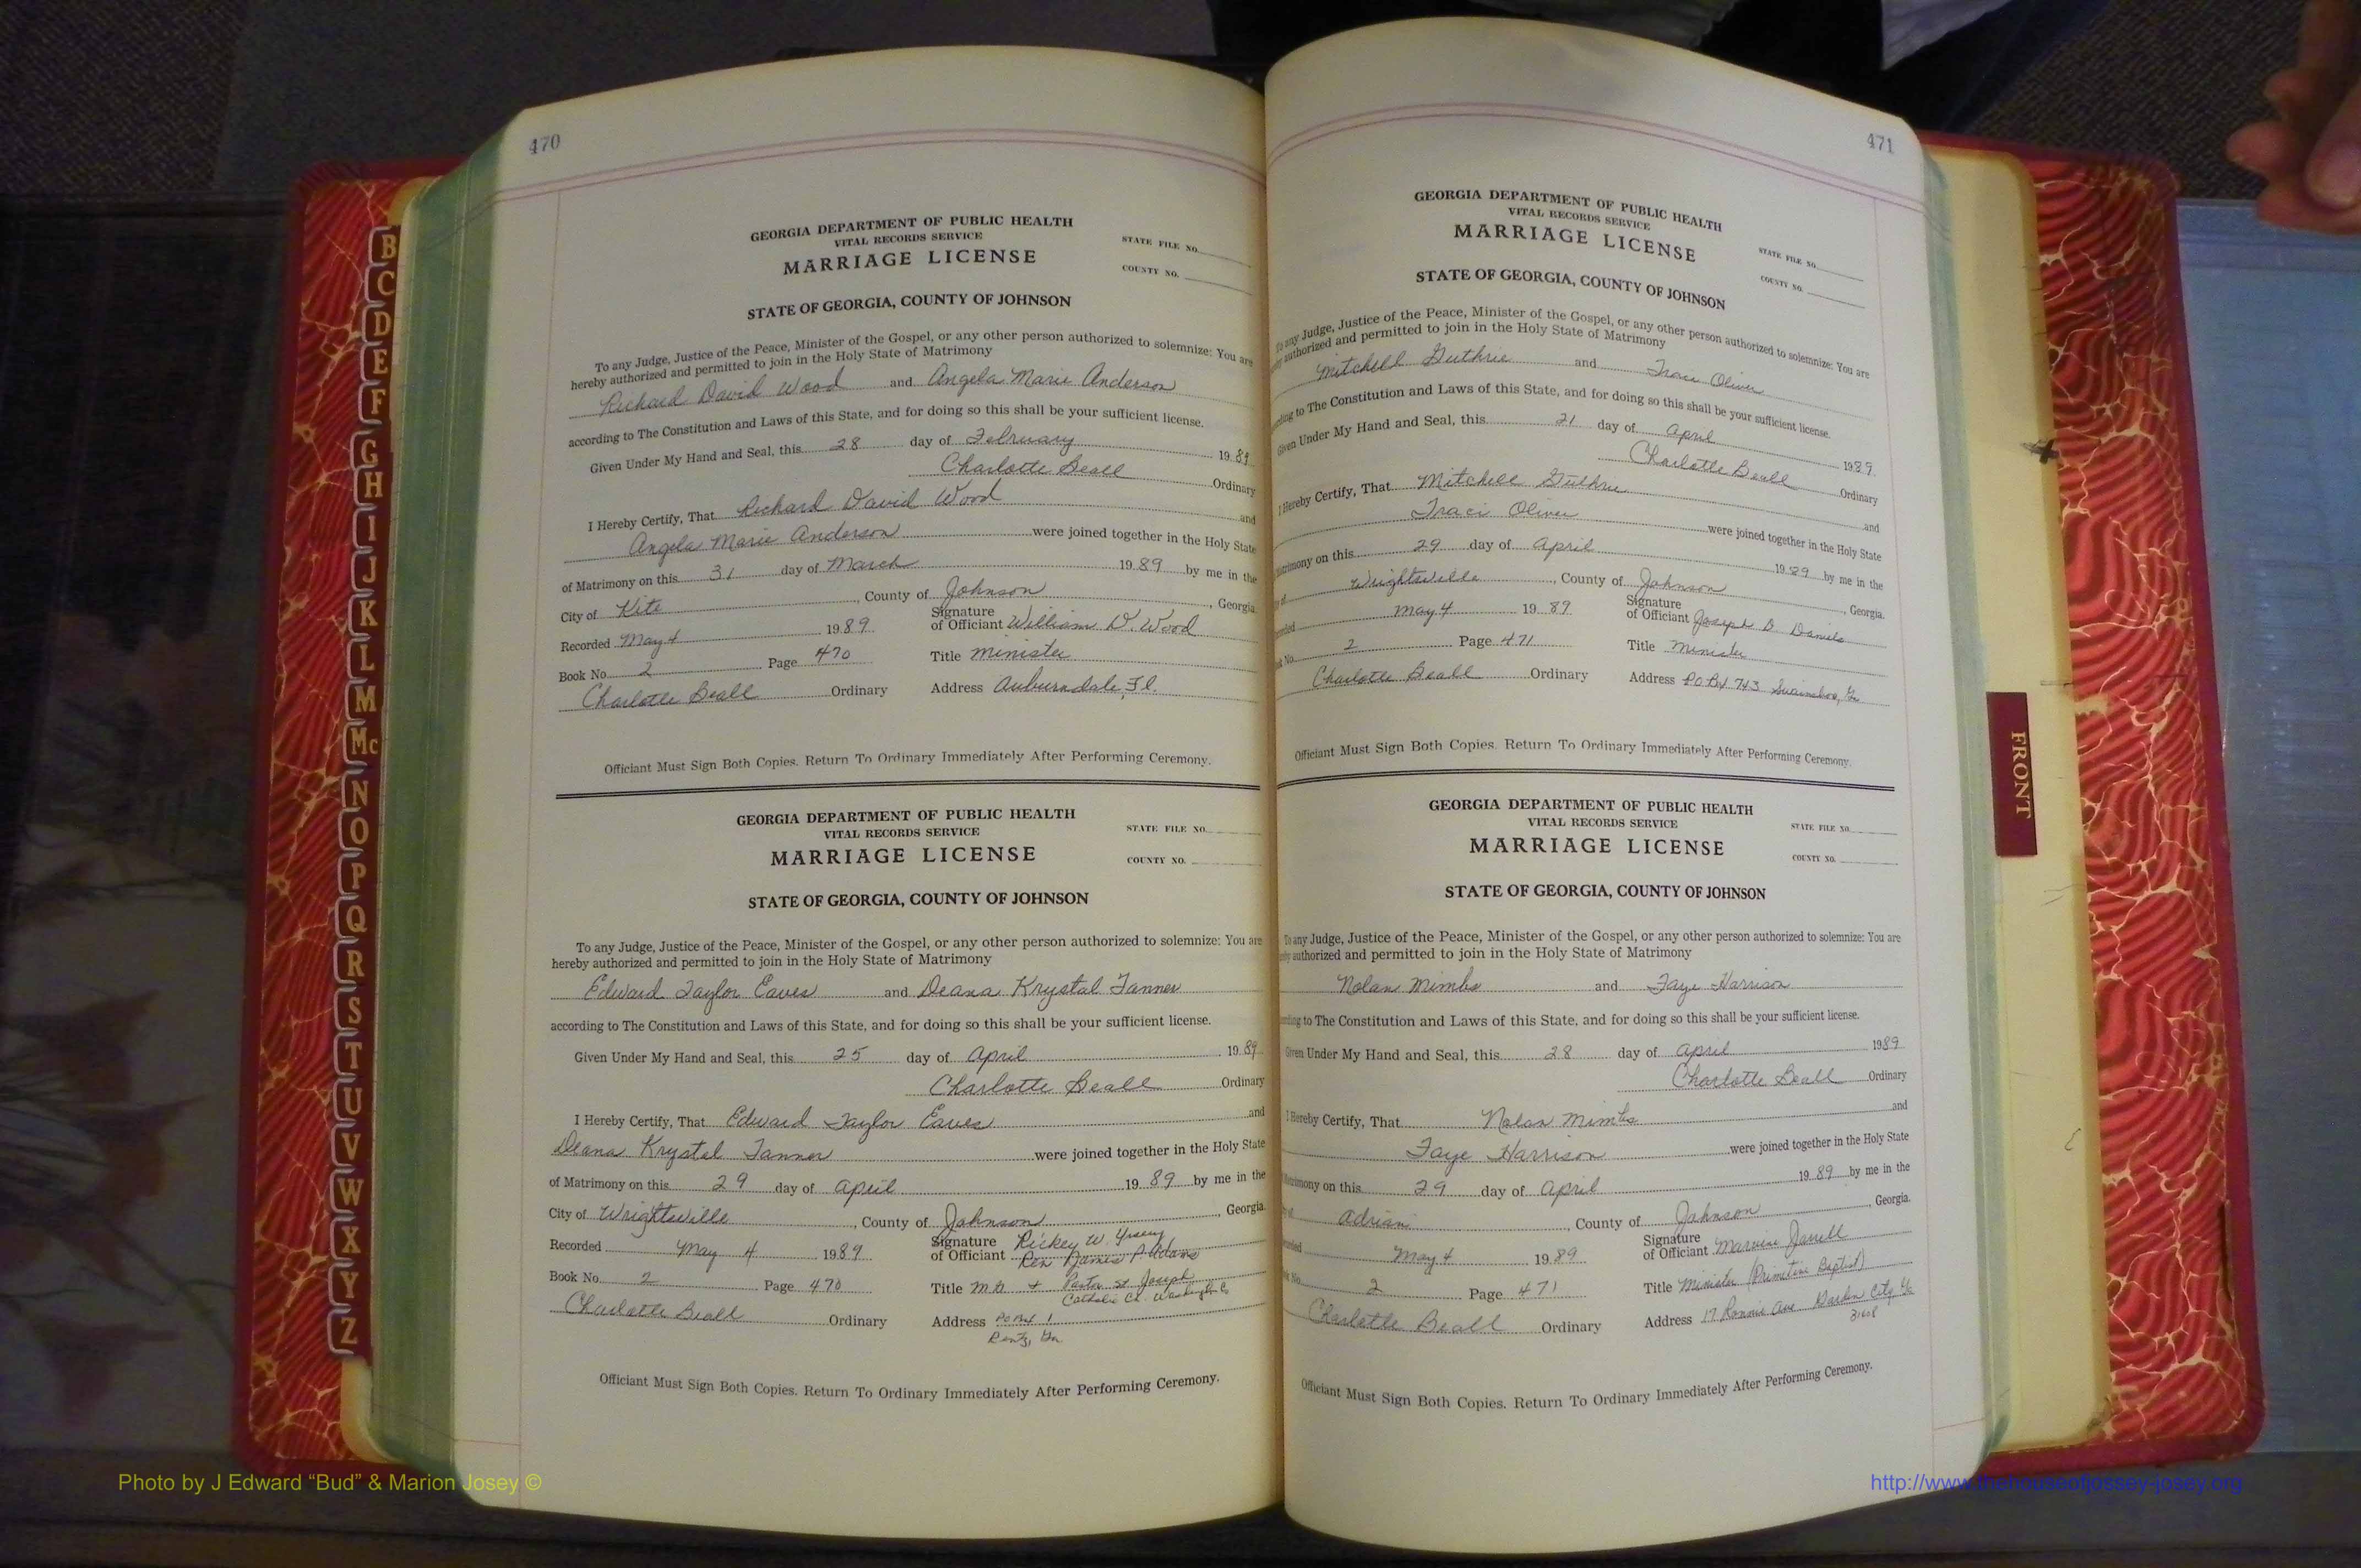 470
GEORGIA DEPARTMENT OF PUBLIC HEALTH
VITAL RECORDS SERVICE
MARRIAGE LICENSE
STATE FILE NO.
COUNTY NO.
STATE OF GEORGIA, COUNTY OF JOHNSON
To any Judge, Justice of the Peace, Minister of the Gospel, or any other person authorized to solemnize: You are
hereby authorized and permitted to join in the Holy State of Matrimony
Richard David Wood and Angela Marie Anderson
according to The Constitution and Laws of this State, and for doing so this shall be your sufficient license.
Given Under My Hand and Seal, this 28 day of February 19 89
Charlotte Beall Ordinary
I Hereby Certify, That Richard David Wood and
Angela Marie Anderson were joined together in the Holy State
of Matrimony on this 31 day of March 19 89 by me in the
City of Kite, County of Johnson, Georgia
Recorded May 4 1989 Signature of Officiant William D. Wood
Book No. 2 Page 470 Title minister
Charlotte Beall Ordinary Address Auburndale, Fl.
Officiant Must Sign Both Copies. Return To Ordinary Immediately After Performing Ceremony.
GEORGIA DEPARTMENT OF PUBLIC HEALTH
VITAL RECORDS SERVICE
MARRIAGE LICENSE
STATE FILE NO.
COUNTY NO.
STATE OF GEORGIA, COUNTY OF JOHNSON
To any Judge, Justice of the Peace, Minister of the Gospel, or any other person authorized to solemnize: You are
hereby authorized and permitted to join in the Holy State of Matrimony
Edward Taylor Eaves and Deana Krystal Tanner
according to The Constitution and Laws of this State, and for doing so this shall be your sufficient license.
Given Under My Hand and Seal, this 25 day of April 19 89
Charlotte Beall Ordinary
I Hereby Certify, That Edward Taylor Eaves and
Deana Krystal Tanner were joined together in the Holy State
of Matrimony on this 29 day of April 19 89 by me in the
City of Wrightsville, County of Johnson, Georgia
Recorded May 4 1989 Signature of Officiant Rickey W.
Rev James P. Adams
Book No. 2 Page 470 Title + Pastor St Joseph
Catholic Ch.
Charlotte Beall Ordinary Address PO Box 1
Rentz, Ga.
Officiant Must Sign Both Copies. Return To Ordinary Immediately After Performing Ceremony.
471
GEORGIA DEPARTMENT OF PUBLIC HEALTH
VITAL RECORDS SERVICE
MARRIAGE LICENSE
STATE FILE NO.
COUNTY NO.
STATE OF GEORGIA, COUNTY OF JOHNSON
To any Judge, Justice of the Peace, Minister of the Gospel, or any other person authorized to solemnize: You are
authorized and permitted to join in the Holy State of Matrimony
Mitchell Guthrie and Traci Oliver
to The Constitution and Laws of this State, and for doing so this shall be your sufficient license.
Given Under My Hand and Seal, this 21 day of April 1989
Charlotte Beall Ordinary
I Hereby Certify, That Mitchell Guthrie and
Traci Oliver were joined together in the Holy State
on this 29 day of April 19 89 by me in the
Wrightsville, County of Johnson, Georgia.
May 4 19 89 Signature of Officiant Joseph D Daniels
2 Page 471 Title Minister
Charlotte Beall Ordinary Address PO Bx 743 Swainsboro, Ga
Officiant Must Sign Both Copies. Return To Ordinary Immediately After Performing Ceremony.
GEORGIA DEPARTMENT OF PUBLIC HEALTH
VITAL RECORDS SERVICE
MARRIAGE LICENSE
STATE FILE NO.
COUNTY NO.
STATE OF GEORGIA, COUNTY OF JOHNSON
To any Judge, Justice of the Peace, Minister of the Gospel, or any other person authorized to solemnize: You are
authorized and permitted to join in the Holy State of Matrimony
Nolan Mimbs and Faye Harrison
to The Constitution and Laws of this State, and for doing so this shall be your sufficient license.
Given Under My Hand and Seal, this 28 day of April 1989
Charlotte Beall Ordinary
I Hereby Certify, That Nolan Mimbs and
Faye Harrison were joined together in the Holy State
on this 29 day of April 19 89 by me in the
Adrian, County of Johnson, Georgia.
May 4 1989 Signature of Officiant Jarrell
2 Page 471 Title Minister (Primitive Baptist)
Charlotte Beall Ordinary Address 17 Ronnie Ave Garden City Ga
Officiant Must Sign Both Copies. Return To Ordinary Immediately After Performing Ceremony.
B
C
D
E
F
G
H
I
J
K
L
M
Mc
N
O
P
Q
R
S
T
U
V
W
X
Y
Z
FRONT
Photo by J Edward “Bud” & Marion Josey ©
http://www.thehouseofjossey-josey.org